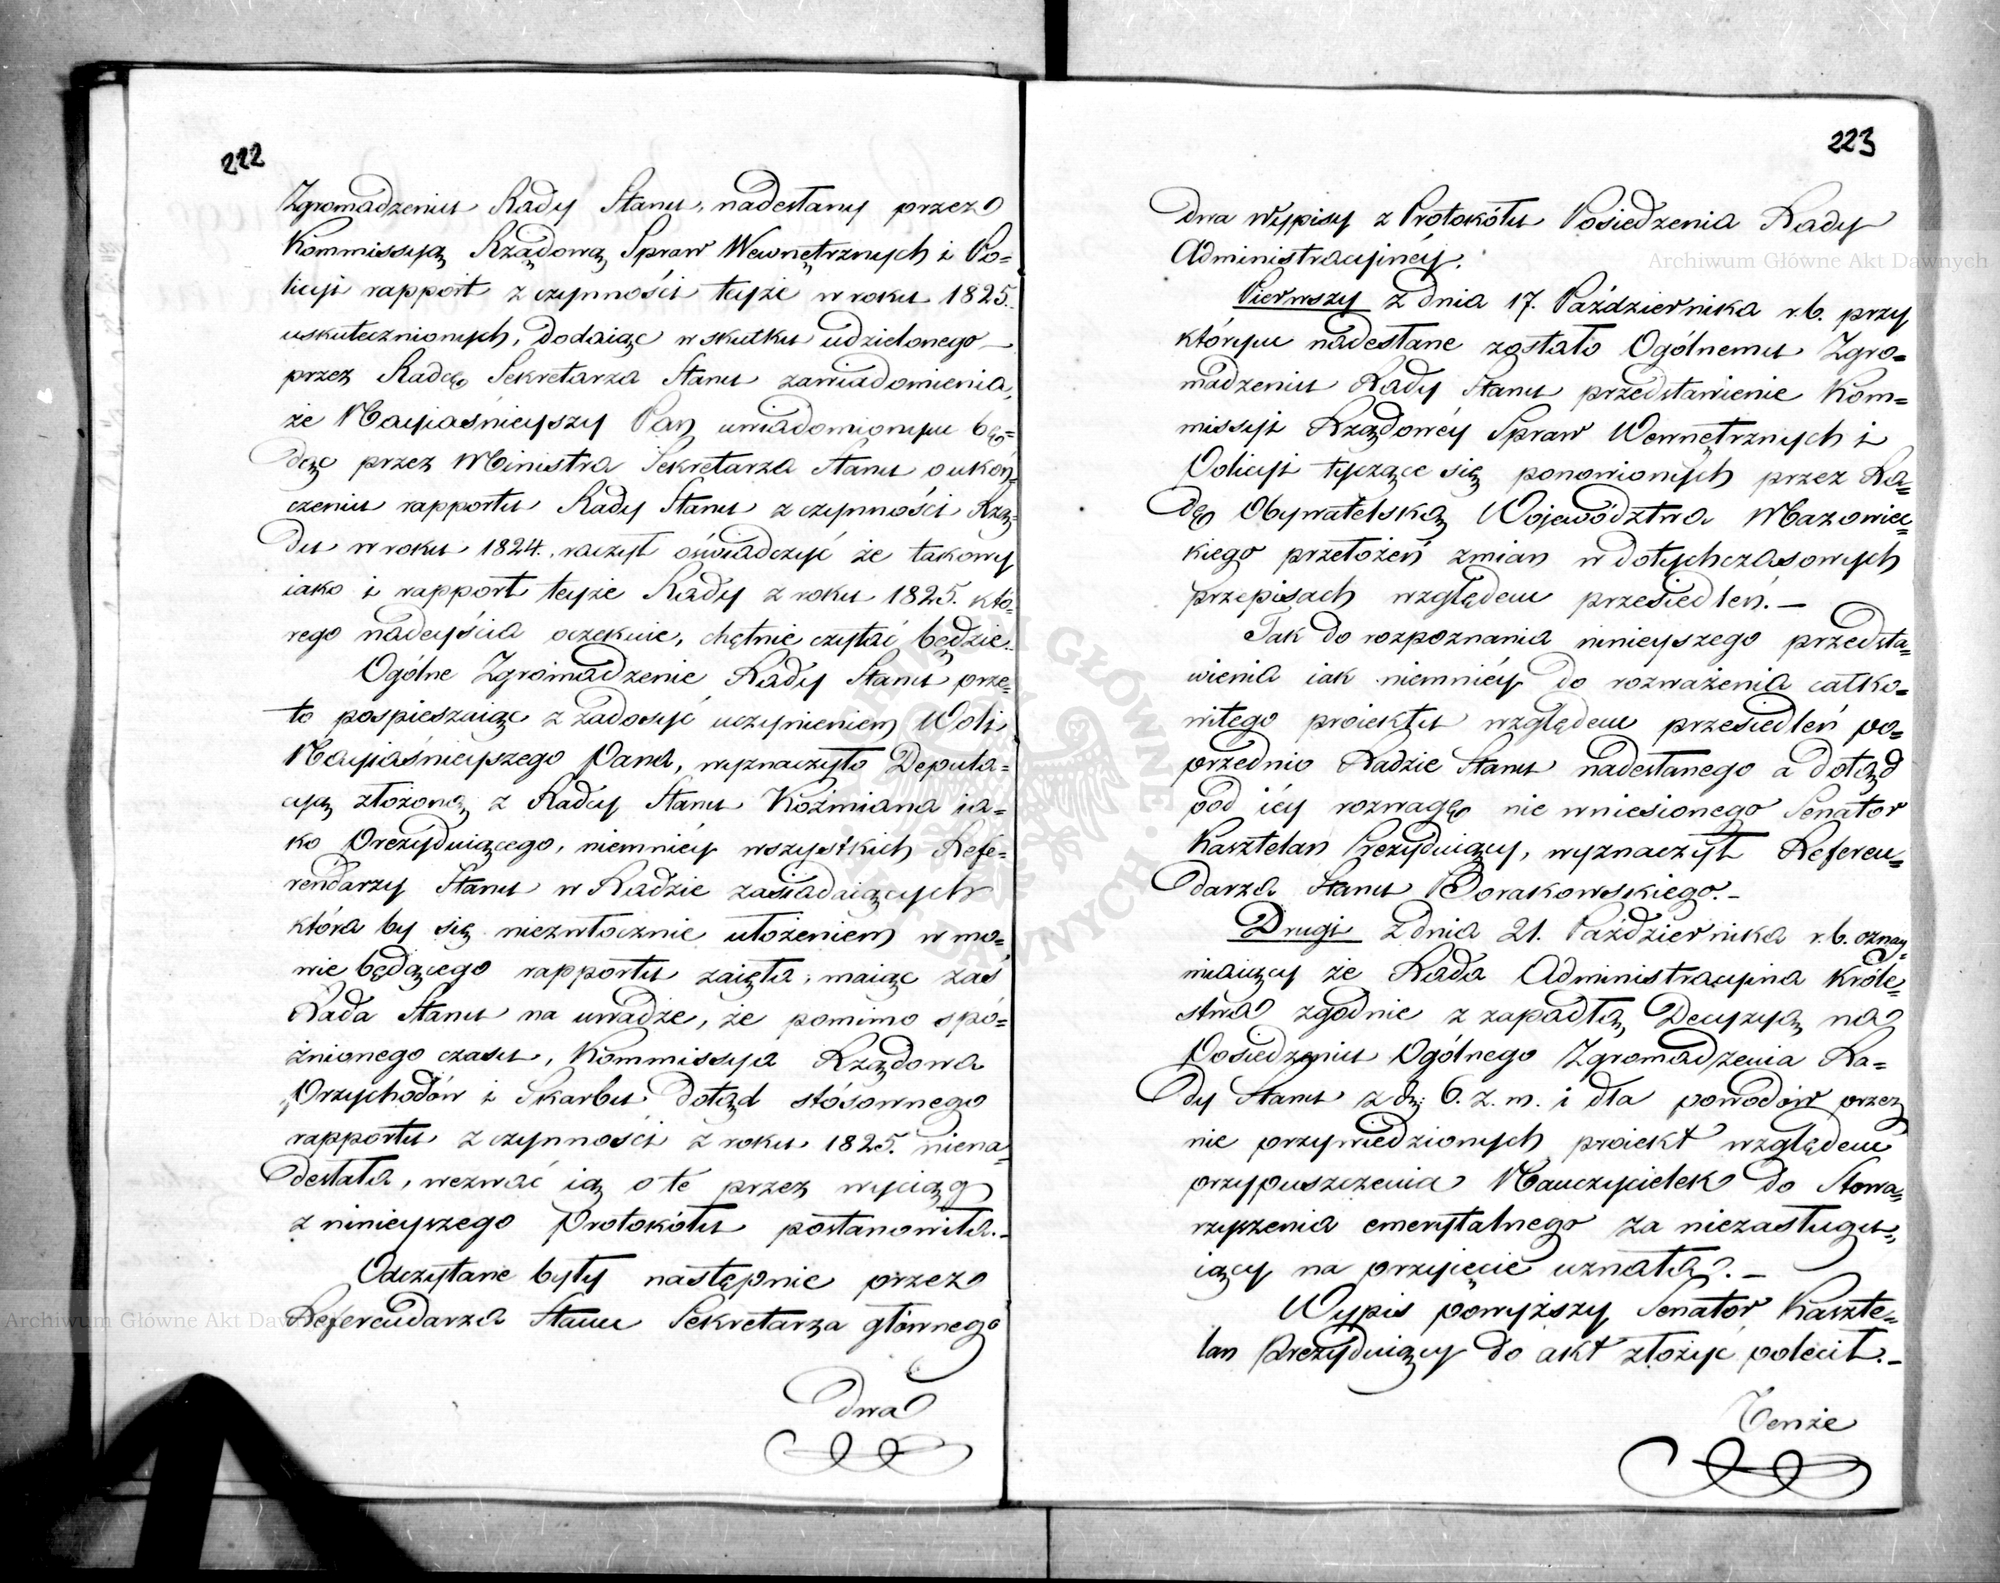 222
Zgromadzeniu Rady Stanu, nadesłany przez
Kommissyą Rządową Spraw Wewnętrznych i Po=
licyi rapport z czynności teyże w roku 1825.
uskutecznionych, dodaiąc w skutku udzielonego
przez Radcę Sekretarza Stanu zawiadomienia,
że Nayiaśnieyszy Pan uwiadomionym bę=
dąc przez Ministra Sekretarza Stanu o ukoń=
czeniu rapportu Rady Stanu z czynności Rzą=
du w roku 1824. raczył oświadczyć że takowy
iako i rapport teyże Rady z roku 1825. któ=
rego nadeyścia oczekuie, chętnie czytać będzie.
Ogólne Zgromadzenie Rady Stanu prze=
to pospieszaiąc z zadosyć uczynieniem Woli
Nayiaśnieyszego Pana, wyznaczyło Deputa=
cyą złożoną z Radcy Stanu Koźmiana ia=
ko Prezyduiącego, niemniéy wszystkich Refe=
rendarzy Stanu w Radzie zasiadaiących
która by się niezwłocznie ułożeniem w mo=
wie będącego rapportu zaięła; maiąc zaś
Rada Stanu na uwadze, że pomimo spó=
źnionego czasu, Kommissya Rządowa
Przychodów i Skarbu dotąd stósownego
rapportu z czynności z roku 1825. niena=
desłała, wezwać ią o te przez wyciąg
z ninieyszego Protokółu postanowiła.
Odczytane były następnie przez
Referendarza Stanu Sekretarza głównego
Dwa
223
dwa wypisy z Protokółu Posiedzenia Rady
Administracyinéy.
Pierwszy z dnia 17. Października r.b. przy
którym nadesłane zostało Ogólnemu Zgro=
madzeniu Rady Stanu przedstawienie Kom=
missyi Rządowéy Spraw Wewnętrznych i
Policyi tyczące się ponowionych przez Ra=
dę Obywatelską Województwa Mazowiec=
kiego przełożeń zmian w dotychczasowych
przepisach względem przesiedleń.—
Tak do rozpoznania ninieyszego przedsta=
wienia iak niemniéy do rozważenia całko=
witego proiektu względem przesiedleń po=
przednio Radzie Stanu nadesłanego a dotąd
pod iéy rozwagę nie wniesionego Senator
Kasztelan Prezyduiący, wyznaczył Referen=
darza Stanu Borakowskiego.—
Drugi z dnia 21. Października r.b. oznay=
miaiący że Rada Administracyina Króle=
stwa zgodnie z zapadłą Decyzyą na
Posiedzeniu Ogólnego Zgromadzenia Ra=
dy Stanu z d; 6. z. m. i dla powodów przez
nie przywiedzionych proiekt względem
przypuszczenia Nauczycielek do Stowa=
rzyszenia emerytalnego za niezasługu=
iący na przyięcie uznała.—
Wypis powyższy Senator Kaszte=
lan Prezyduiący do akt złożyć polecił.—
Tenże
Archiwum Główne Akt Dawnych
Archiwum Główne Akt Dawnych